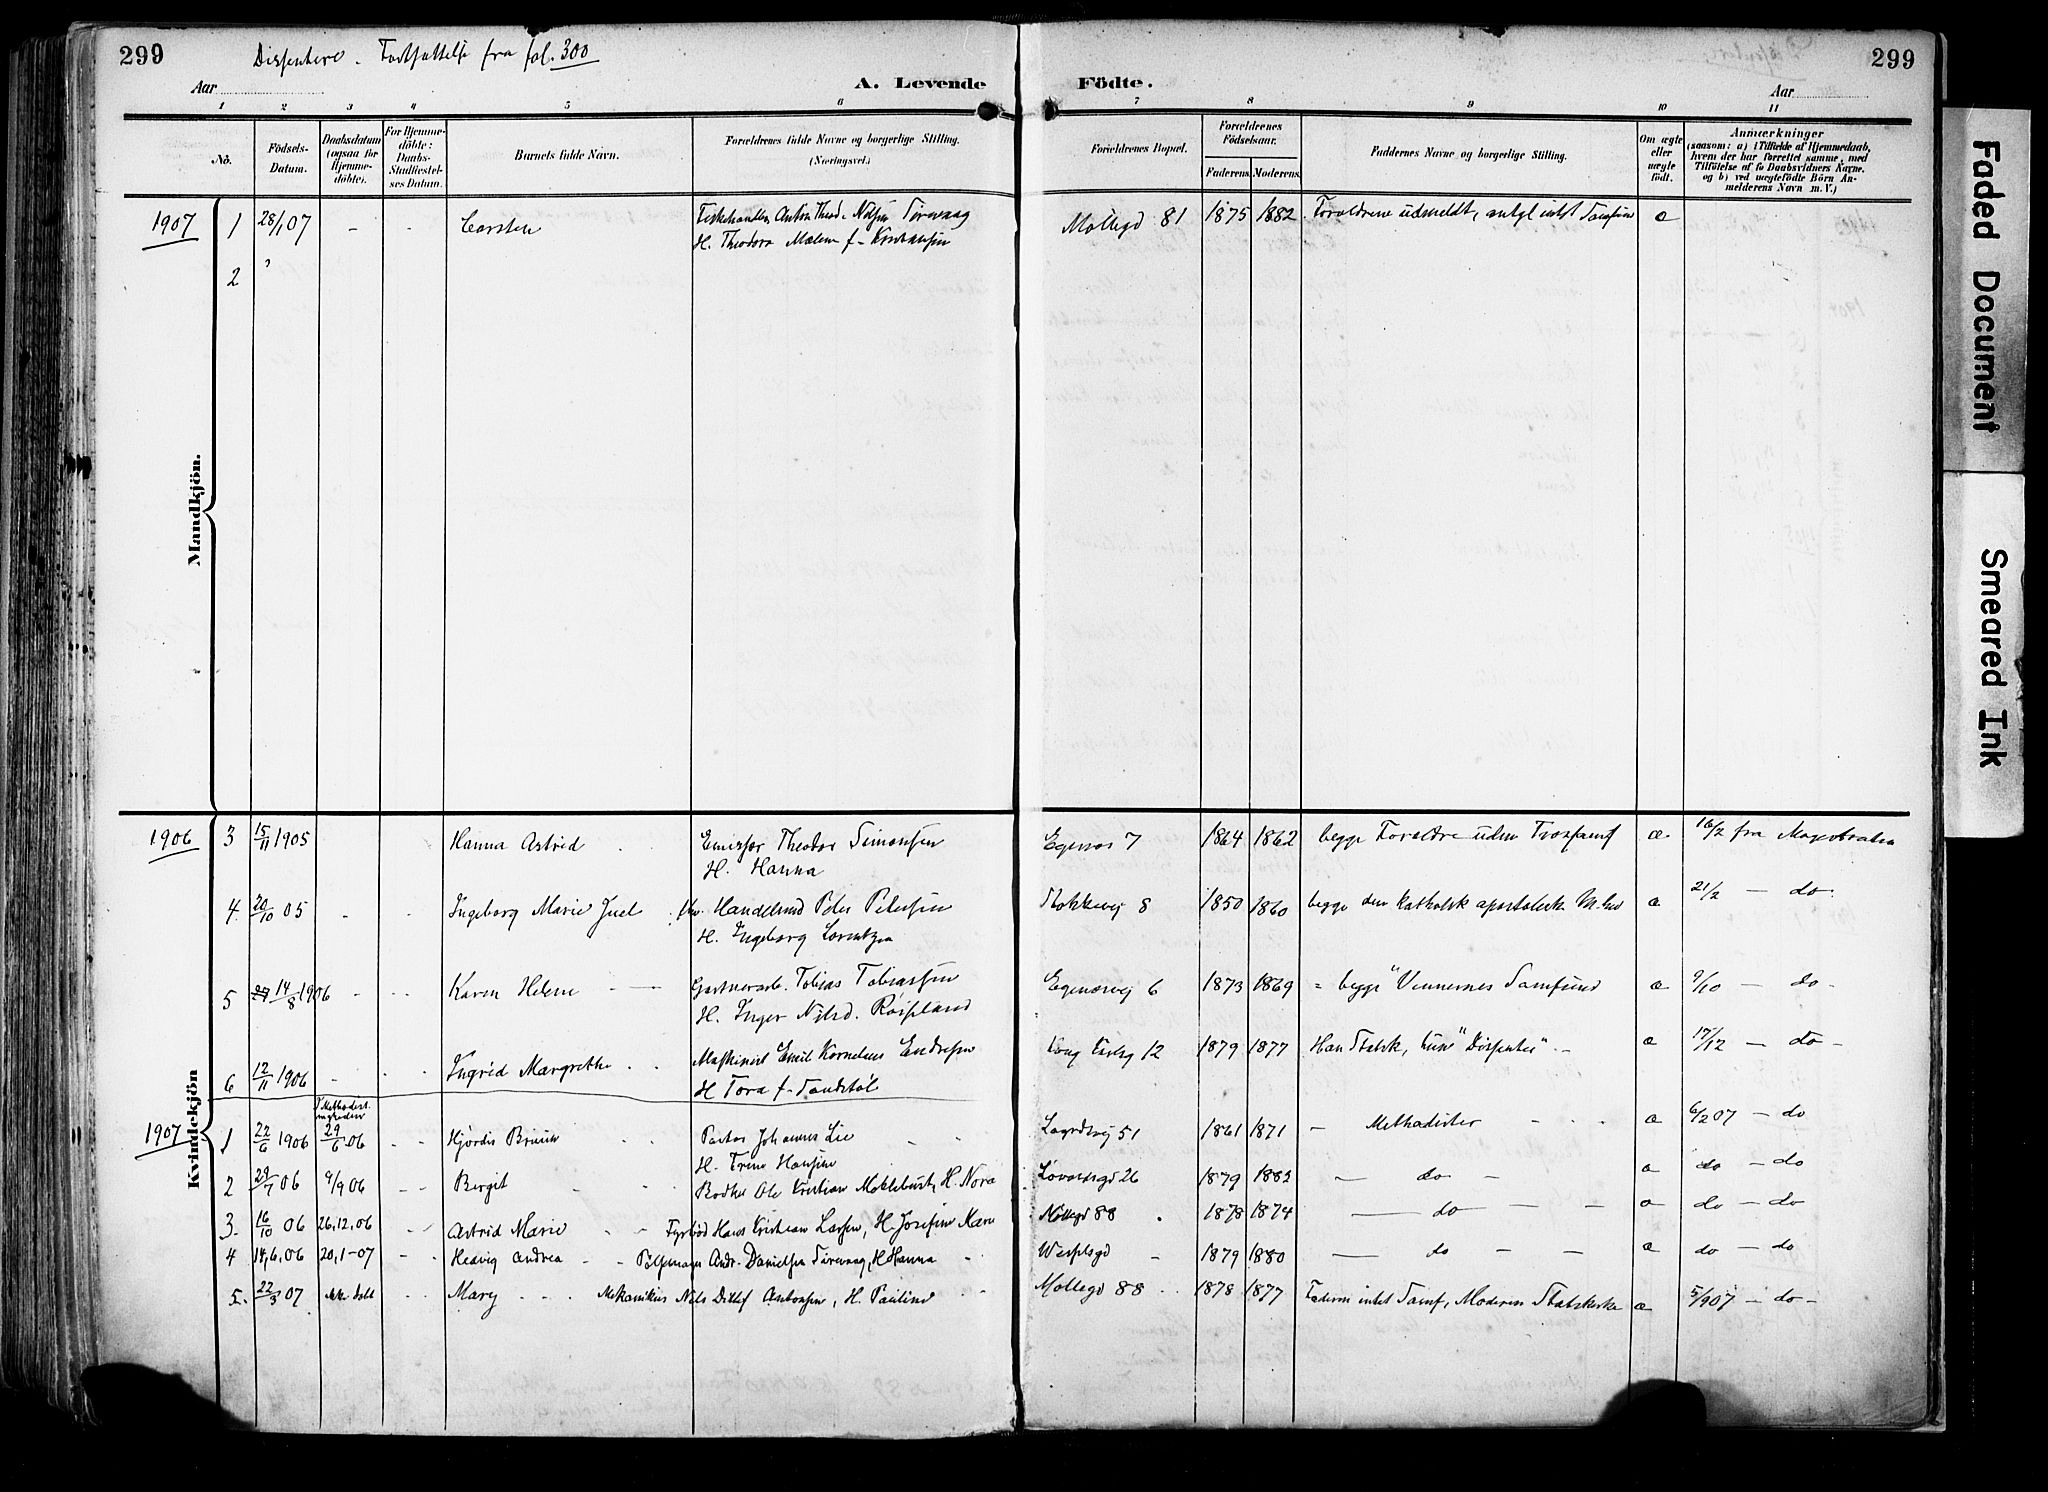 299 Dissentere. Fortsættelse fra fol. 300 299
Aar A. Levende Födte. Aar
1 2 3 4 5 6 7 8 9 10 11
No. Födsels-Datum. Daabsdatum (ogsaa for Hjemmedöbte). For Hjemmedöbte: Daabs-Stadfæstelses Datum. Barnets fulde Navn. Forældrenes fulde Navne og borgerlige Stilling. (Næringsvei.) Forældrenes Bopæl. Forældrenes Födselsaar. Faderens. Moderens. Faddernes Navne og borgerlige Stilling. Om ægte eller uægte födt. Anmærkninger (saasom: a) i Tilfælde af Hjemmedaab, hvem der har forrettet samme, med Tilföielse af to Daabsvidners Navne. og b) ved uægtefödte Börn Anmelderens Navn m. V.)
Mandkjön.
1907 1 28/1 07 - - Carsten Fiskehandler Anton Theod. Nilsen Torevaag Möllegd 81 1875 1882 Forældrene udmeldt, intet Samfund æ
H. Theodora Malene f. Kristiansen
2
Kvindekjön
1906 3 15/11 1905 Hanna Astrid Emissær Theodor Simonsen Egenæs 7 1864 1862 begge Forældre uden Trossamf æ 16/2 fra Magistraten
H. Hanna
4 20/10 05 - - Ingeborg Marie Juel Handelsmd Peter Petersen Stokkevej 8 1850 1860 begge den katholsk apostoliske M. æ 21/2 - do.
H. Ingeborg Lorentzen
5 14/8 1906 - - Karen Helene Gartnerarb. Tobias Tobiassen Egenæsvej 6 1873 1869 begge "Vennernes Samfund æ 9/10 - do -
H. Inger Nilsd. Röisland
6 12/11 1906 - - Ingrid Margrethe Maskinist Emil Kornelius Endresen 12 1879 1877 Han Statsk, hun "Dissenter" - æ 17/12 - do -
H Tora f. Tandstöl
1907 1 22/6 1906 i Methodistmenigheden 29/6 06 - - Hjördis Pastor Johannes Lie Lagårdsvej 51 1861 1871 - Methodister æ 6/2 07 - do
H. Trine Hansine
2 29/7 06 9/9 06 - - Bergit Bödker Ole Kristian Moklebust, H. Nora Lövoldsgd 26 1879 1882 - do - æ do - do
3. 16/10 06 26,12,06 - - Astrid Marie Fyrbød Hans Kristian Larsen, H. Josefine Karen Möllegd 88 1878 1874 - do - - æ do - do
4 14,6,06 20,1-07 - - Hedvig Andrea Politimager Andr. Danielsen Torevaag, H Hanna Wesselsgd - 1879 1880 - do - - æ do - do
5. 22/3 07 ikke døbt - - Mary Mekanikus Nils Ditlef Antonsen, H. Pauline Möllegd 88 1878 1877 Faderen intet Samf, Moderen Statskirke æ 5/9 07 - do -
Faded Document
Smeared Ink